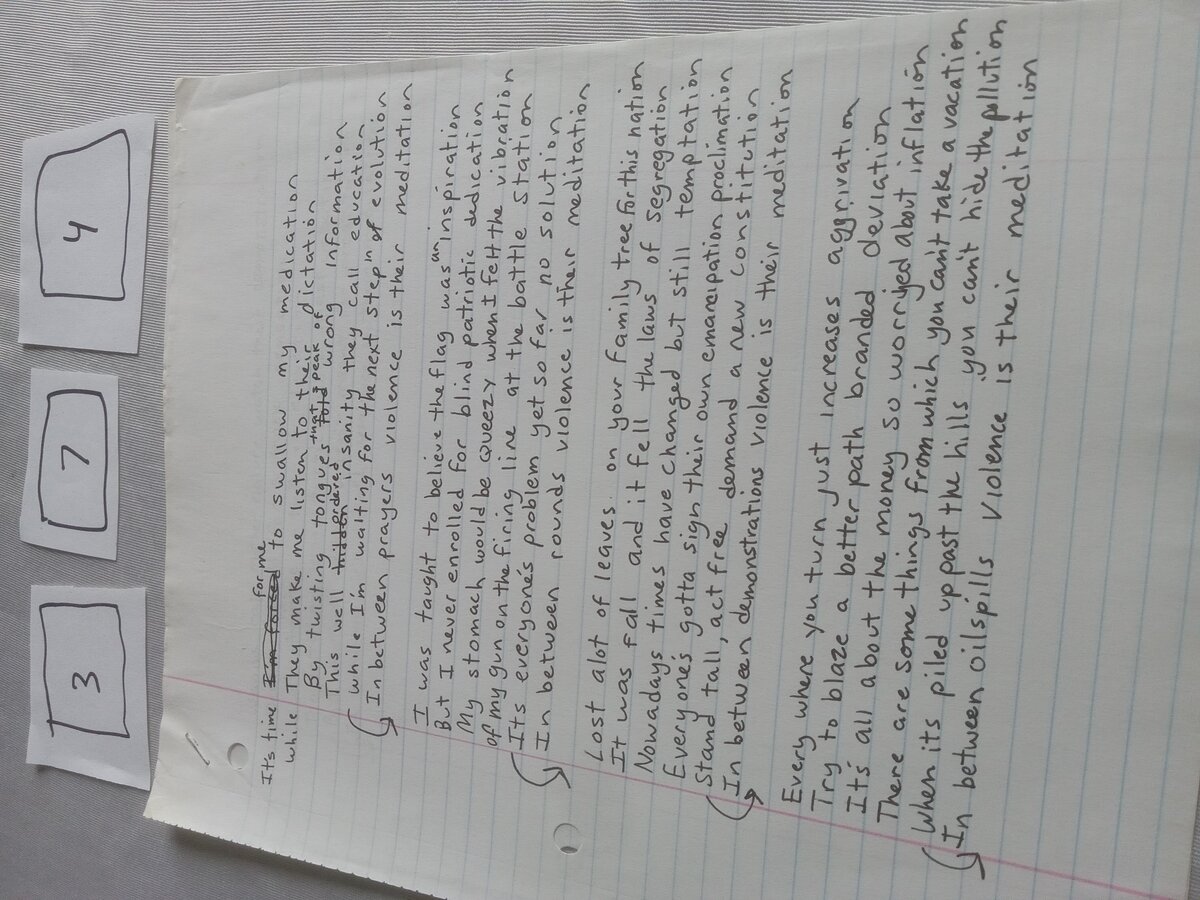 3
7
4
It's time ~~I'm forced~~ for me to swallow my medication
while They make me listen to their dictation
By twisting tongues ~~that~~ speak of ~~told~~ wrong information
This well ~~hidden~~ ordered insanity they call education
while I'm waiting for the next step in evolution
In between prayers violence is their meditation
I was taught to believe the flag was an inspiration
But I never enrolled for blind patriotic dedication
My stomach would be queezy when I felt the vibration
of my gun on the firing line at the battle station
Its everyone's problem yet so far no solution
In between rounds violence is their meditation
Lost alot of leaves on your family tree for this nation
It was fall and it fell the laws of segregation
Nowadays times have changed but still temptation
Everyone's gotta sign their own emancipation proclimation
Stand tall, act free demand a new constitution
In between demonstrations violence is their meditation
Every where you turn just increases aggrivation
Try to blaze a better path branded deviation
It's all about the money so worryed about inflation
There are some things from which you can't take a vacation
When its piled up past the hills you can't hide the pollution
In between oilspills violence is their meditation